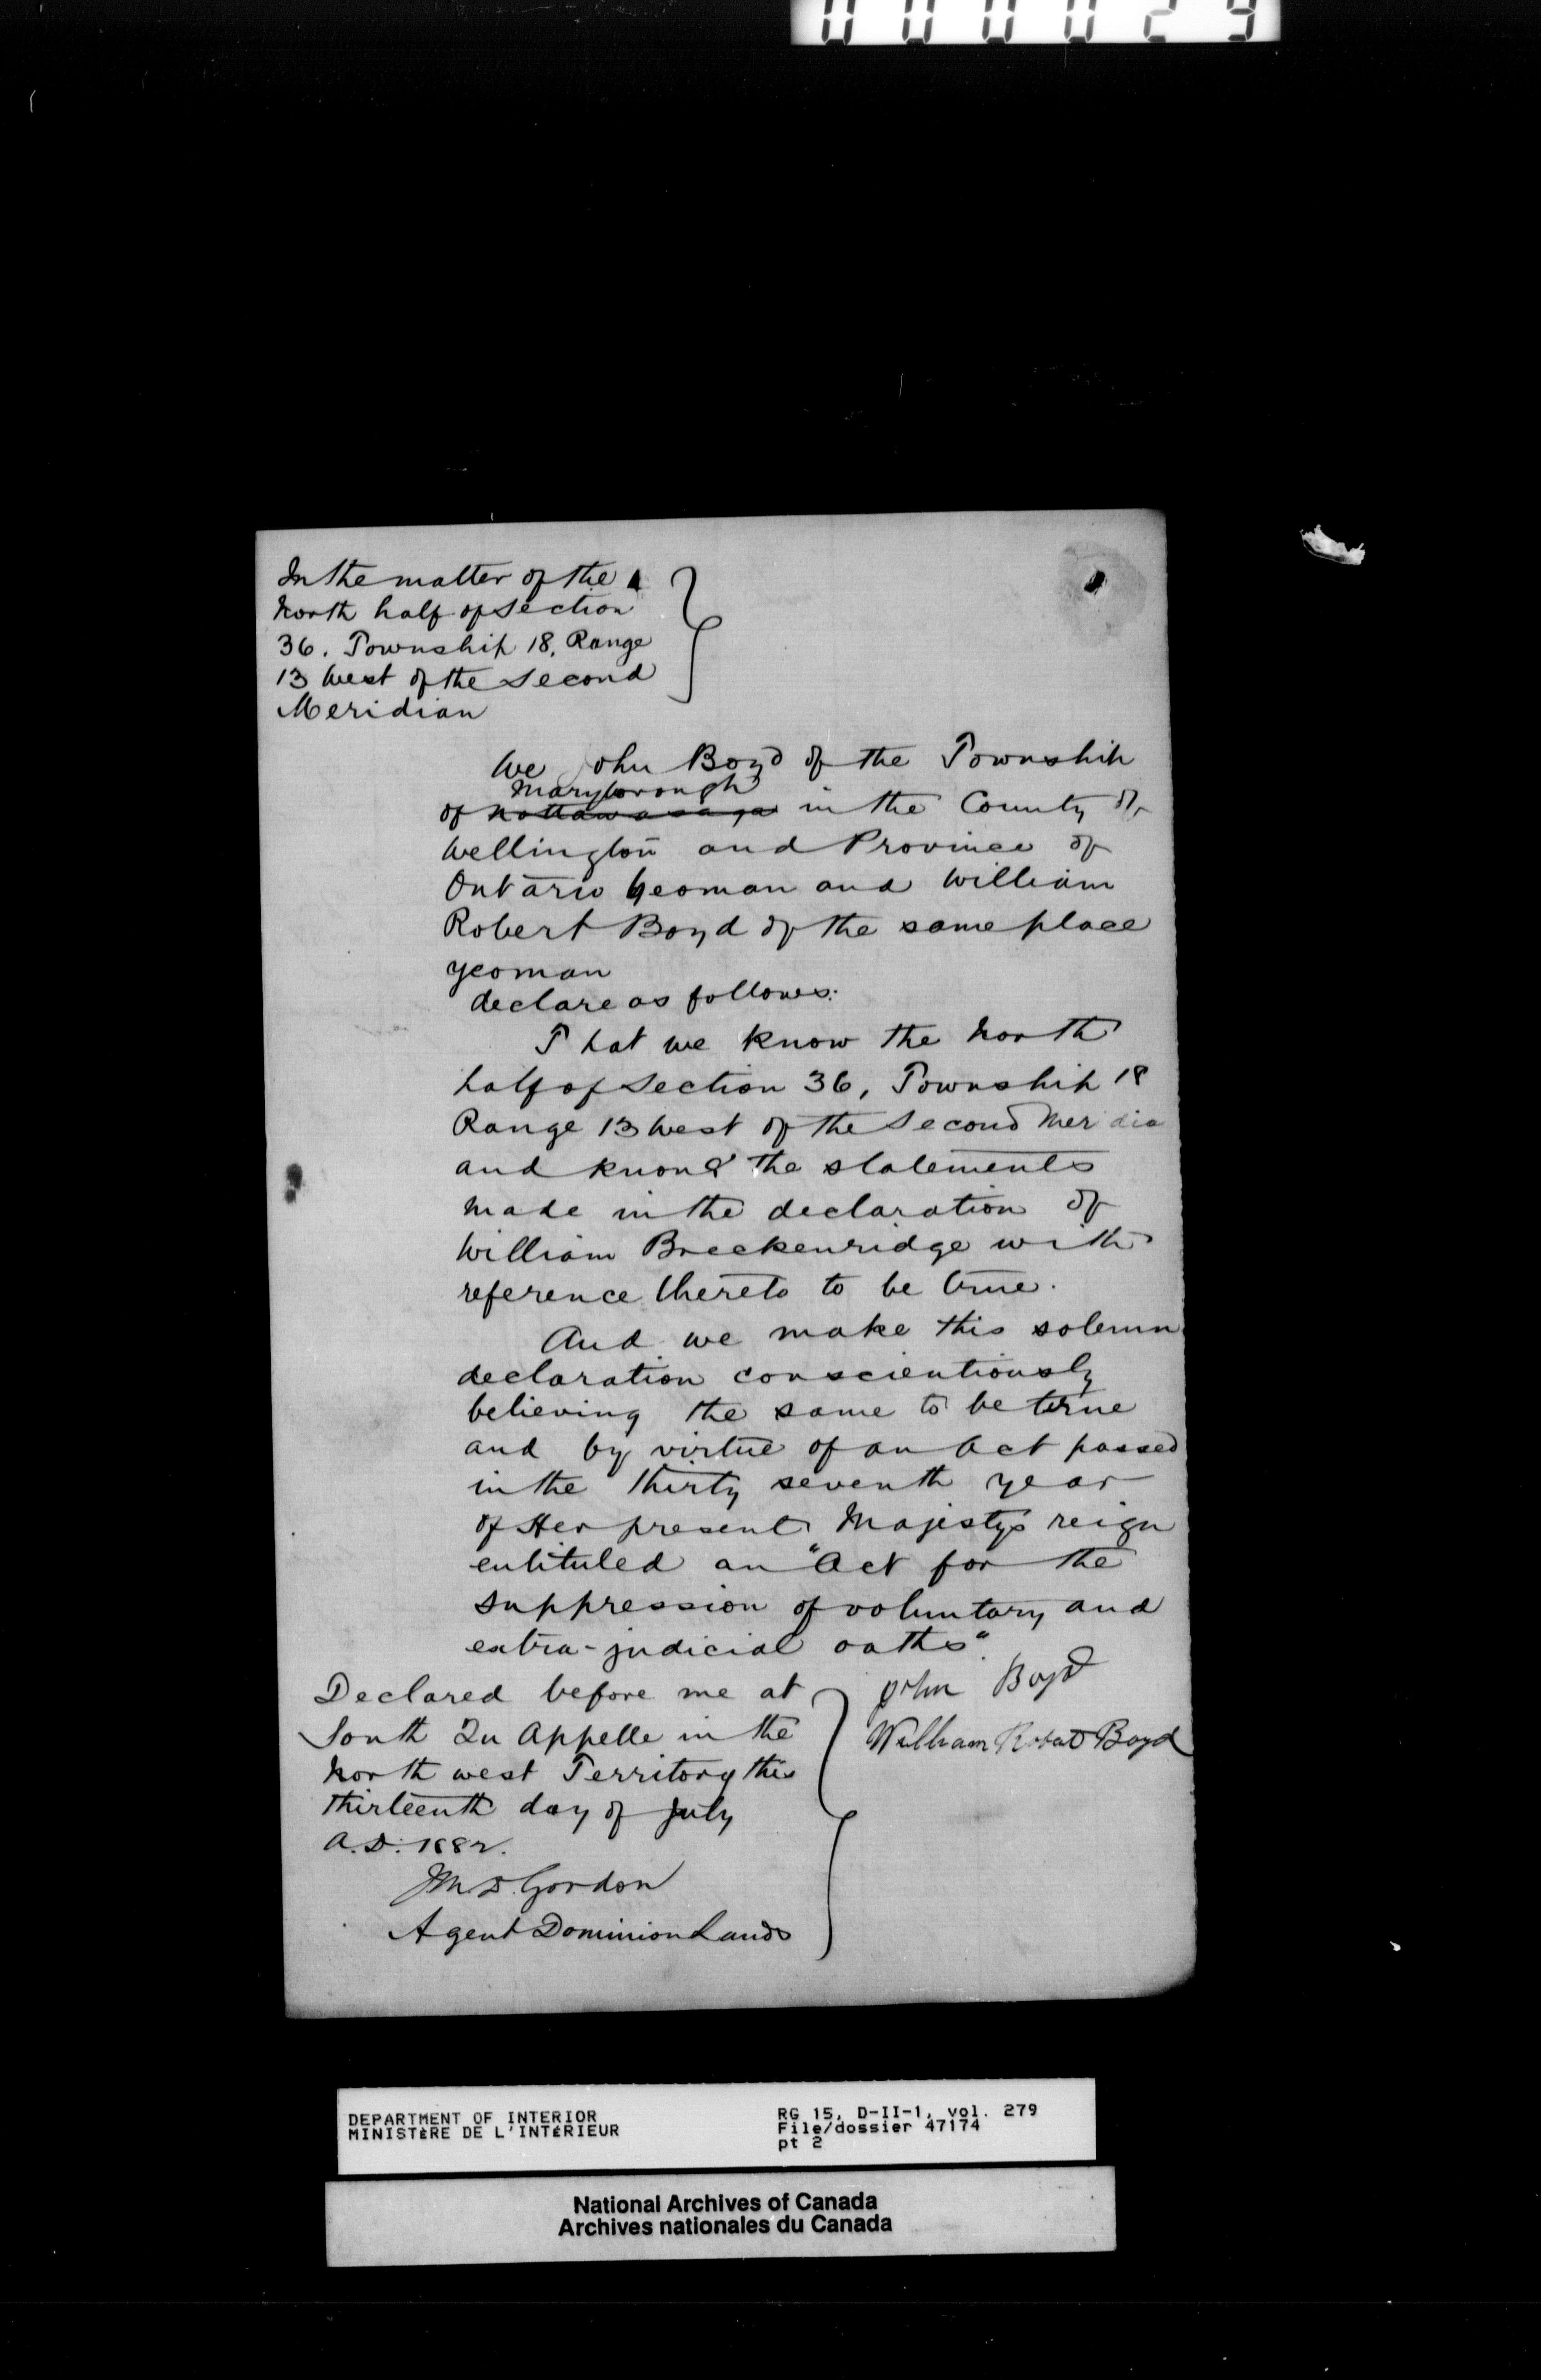 000029
In the matter of the
North half of section
36. Township 18, Range
13 West of the Second
Meridian
We John Boyd of the Township
Maryborough
of Nottawasaga in the County of
Wellington and Province of
Ontario Yeoman and William
Robert Boyd of the same place
yeoman
declare as follows:
That we know the North
half of Section 36, Township 18
Range 13 West of the Second Meridia
and know the statements
made in the declaration of
William Breckenridge with
reference thereto to be true.
And we make this solemn
declaration conscientiously
believing the same to be true
and by virtue of an Act passed
in the thirty seventh year
of Her present Majestys reign
entituled an "Act for the
suppression of voluntary and
extra-judicial oaths".
Declared before me at
South Qu Appelle in the
North west Territory this
thirteenth day of July
A.D. 1882.
John Boyd
William Robert Boyd
Jn D. Gordon
Agent Dominion Lands
DEPARTMENT OF INTERIOR
MINISTÈRE DE L'INTÉRIEUR
RG 15, D-II-1, vol. 279
File/dossier 47174
pt 2
National Archives of Canada
Archives nationales du Canada